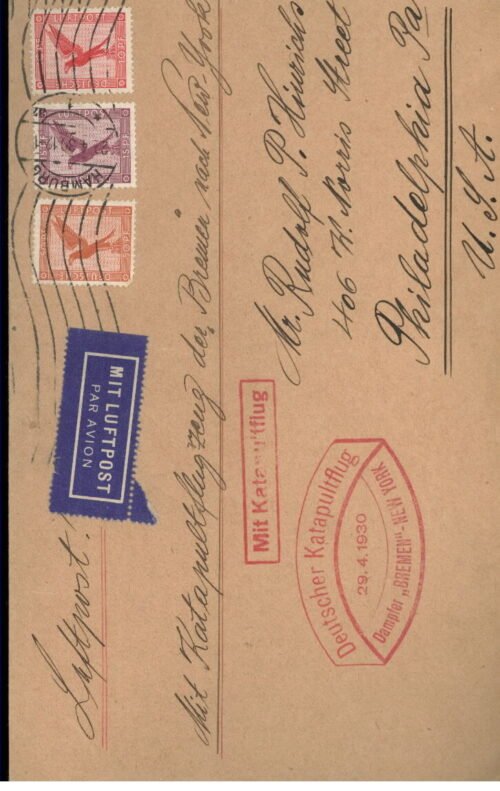 Luftpost!
MIT LUFTPOST
PAR AVION
HAMBURG
Mit Katapultflugzeug der „Bremen" nach New-York
Mit Katapultflug
Mr. Rudolf P. Hinrichs
406 W. Norris Street
Philadelphia Pa
U.S.A.
Deutscher Katapultflug
29.4.1930
Dampfer „BREMEN"-NEW YORK